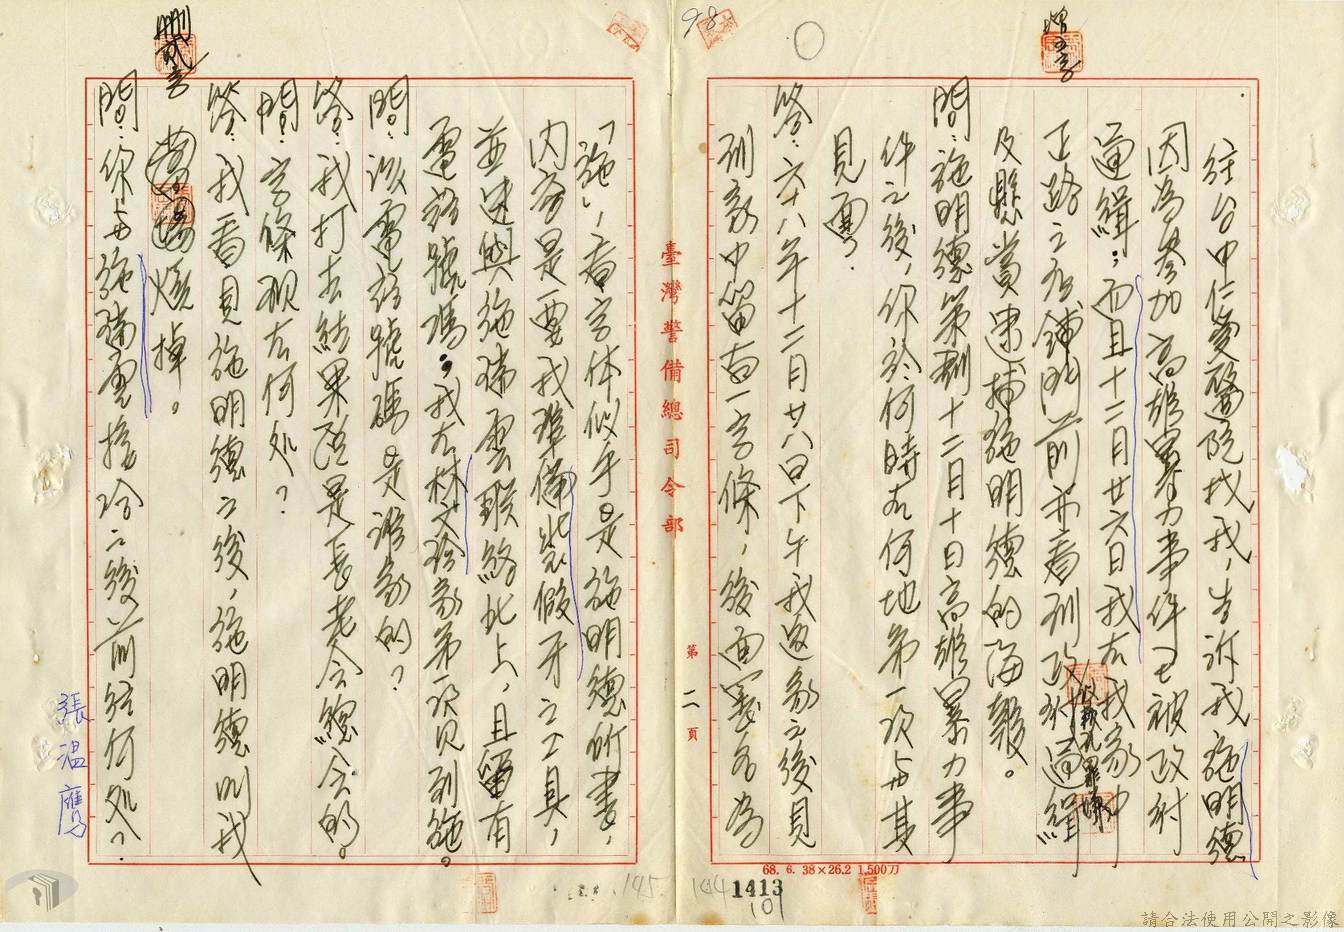 98
增四字
往台中仁愛醫院找我，告訴我施明德
因為參加高雄暴力事件已被政府
通緝；而且十二月廿六日我在我家中
正路之店鋪門前亦看到政府通緝
以叛亂罪嫌
及懸賞逮捕施明德的海報。
問：施明德第 十二月十日高雄暴力事
件之後，你於何時在何地第一次與其
見面？
答：六十八年十二月廿八日下午我返家之後見
到家中留有一字條，後面署名為
臺灣警備總司令部
第二頁
「施」，看字体似乎是施明德所書，
內容是要我準備裝假牙之工具，
並速與施瑞雲聯絡北上，且留有
電話號碼；我在林文珍家第一次見到施。
問：該電話號碼是誰家的？
答：我打去結果說是長老會總會的。
問：字條現在何処？
答：我看見施明德之後，施明德叫我
燒掉。
刪貳字
問：你與施瑞雲接洽之後前往何処？
張溫鷹
68. 6. 38×26.2 1,500刀
145
144
1413
101
請合法使用公開之影像